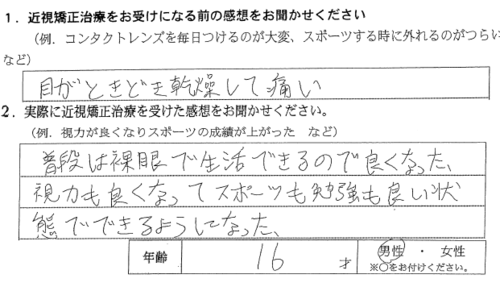 1．近視矯正治療をお受けになる前の感想をお聞かせください
(例．コンタクトレンズを毎日つけるのが大変、スポーツする時に外れるのがつらい
など)
目がときどき乾燥して痛い
2．実際に近視矯正治療を受けた感想をお聞かせください。
(例．視力が良くなりスポーツの成績が上がった　など)
普段は裸眼で生活できるので良くなった、
視力も良くなってスポーツも勉強も良い状
態でできるようになった、
年齢 16 才 男性 ・ 女性
※○をお付けください。